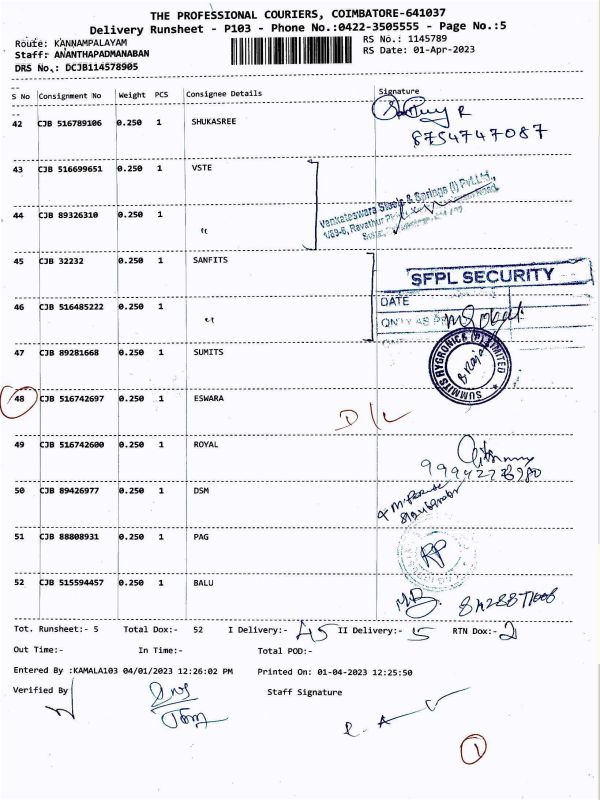 THE PROFESSIONAL COURIERS, COIMBATORE-641037
Delivery Runsheet - P103 - Phone No.:0422-3505555 - Page No.:5
Route: KANNAMPALAYAM RS No.: 1145789
Staff: ANANTHAPADMANABAN RS Date: 01-Apr-2023
DRS No,: DCJB114578905
S No Consignment No Weight PCS Consignee Details Signature
42 CJB 516789106 0.250 1 SHUKASREE
8754747087
43 CJB 516699651 0.250 1 VSTE
Venkateswara Steels & Springs (I) Pvt.Ltd.,
44 CJB 89326310 0.250 1 "
45 CJB 32232 0.250 1 SANFITS
SFPL SECURITY
DATE
46 CJB 516485222 0.250 1 "
47 CJB 89281668 0.250 1 SUMITS
SUMMITS HYGRONICS (P) LIMITED
48 CJB 516742697 0.250 1 ESWARA D/L
49 CJB 516742600 0.250 1 ROYAL
50 CJB 89426977 0.250 1 DSM
51 CJB 88808931 0.250 1 PAG
RP
52 CJB 515594457 0.250 1 BALU
Tot. Runsheet:- 5 Total Dox:- 52 I Delivery:- 45 II Delivery:- 5 RTN Dox:- 2
Out Time:- In Time:- Total POD:-
Entered By :KAMALA103 04/01/2023 12:26:02 PM Printed On: 01-04-2023 12:25:50
Verified By Staff Signature
1